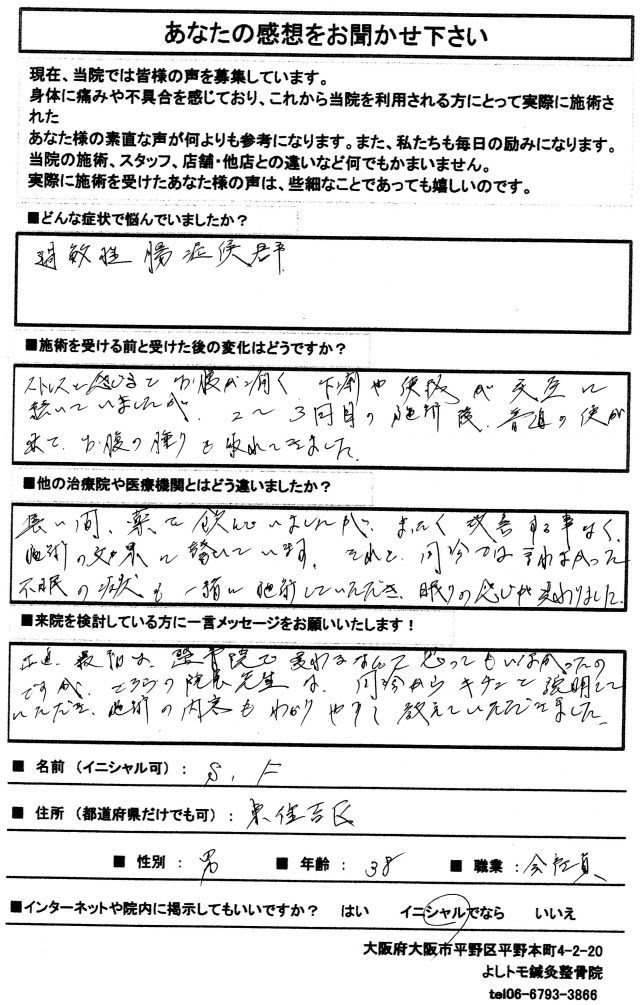 あなたの感想をお聞かせ下さい
現在、当院では皆様の声を募集しています。
身体に痛みや不具合を感じており、これから当院を利用される方にとって実際に施術さ
れた
あなた様の素直な声が何よりも参考になります。また、私たちも毎日の励みになります。
当院の施術、スタッフ、店舗・他店との違いなど何でもかまいません。
実際に施術を受けたあなた様の声は、些細なことであっても嬉しいのです。
■どんな症状で悩んでいましたか？
過敏性腸症候群
■施術を受ける前と受けた後の変化はどうですか？
ストレスを感じるとお腹が痛く、下痢や便秘が交互に
続いていましたが、2〜3回目の施術後、普通の便が
来て、お腹の張りも取れてきました。
■他の治療院や医療機関とはどう違いましたか？
長い間、薬を飲んでいましたが、まったく改善する事なく、
施術の効果に驚いています。それと、問診では言わなかった
不眠の症状も一緒に施術していただき、眠りの感じが変わりました。
■来院を検討している方に一言メッセージをお願いいたします！
正直、最初は、整骨院で変わるなんて思ってもいなかったの
ですが、こちらの院長先生は、問診からキチンと説明して
いただき、施術の内容もわかりやすく教えていただきました。
■ 名前（イニシャル可）： S，F
■ 住所（都道府県だけでも可）： 東住吉区
■ 性別 ： 男 ■ 年齢 ： 38 ■ 職業 ： 会社員
■インターネットや院内に掲示してもいいですか？ はい イニシャルでなら いいえ
大阪府大阪市平野区平野本町4-2-20
よしトモ鍼灸整骨院
tel06-6793-3866